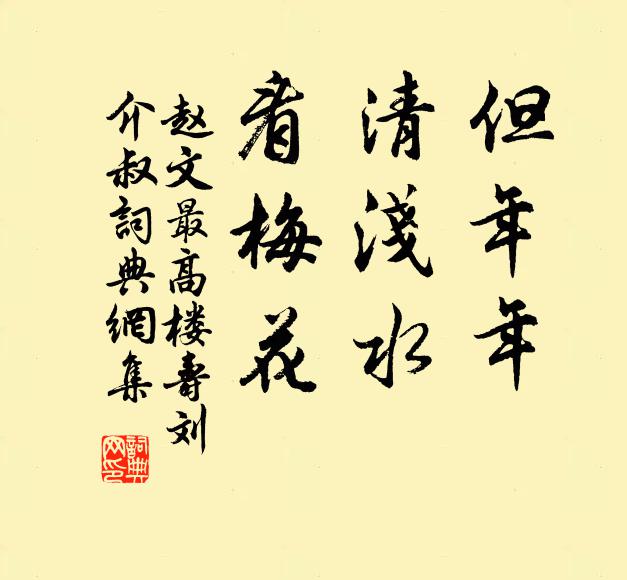 但年年
清淺水
看梅花
赵文最高楼壽刘
介叔詞典網集
詞典网印